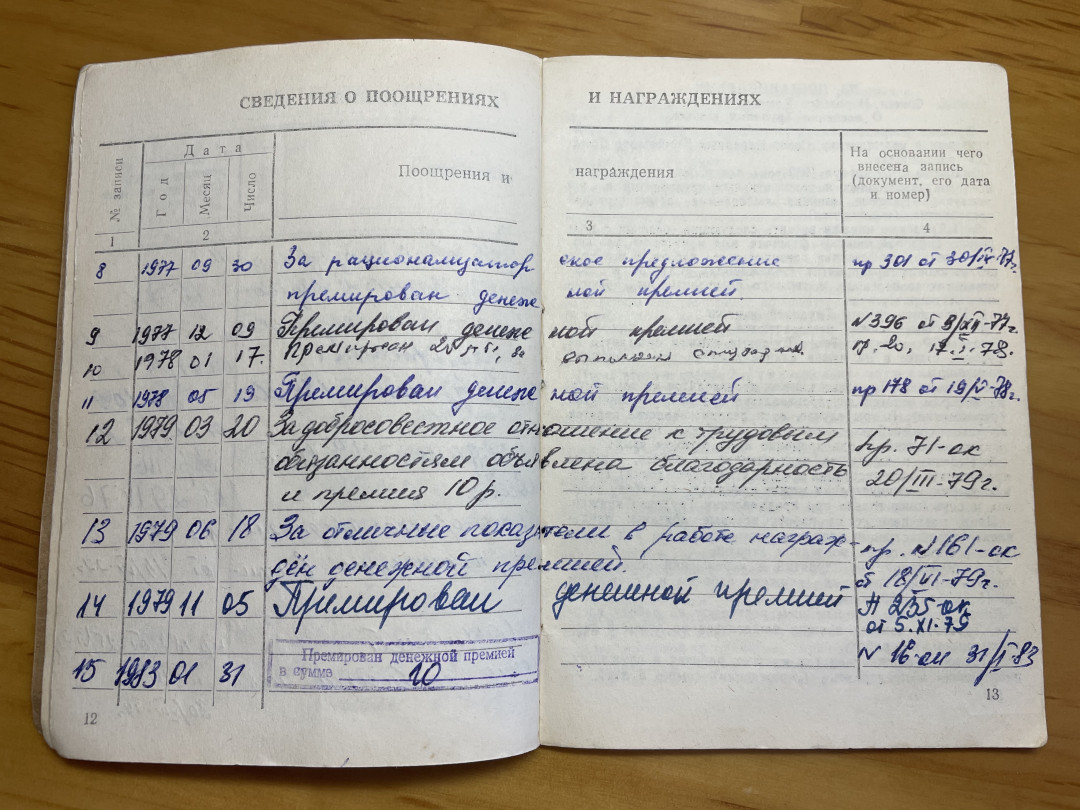 СВЕДЕНИЯ О ПООЩРЕНИЯХ И НАГРАЖДЕНИЯХ
№ записи
Дата
Год
Месяц
Число
Поощрения и награждения
На основании чего
внесена запись
(документ, его дата
и номер)
1 2 3 4
8 1977 09 30 За рационализаторское предложение пр 301 от 30/IX-77г.
премирован денежной премией
9 1977 12 09 Премирован денежной премией N396 от 9/XII-77г.
10 1978 01 17. премирован за пр. 20, 17.I.78.
11 1978 05 19 Премирован денежной премией пр 178 от 19/V-78г.
12 1979 03 20 За добросовестное отношение к трудовым пр. 71-ок
обязанностям объявлена благодарность 20/III-79г.
и премия 10 р.
13 1979 06 18 За отличные показатели в работе награж- пр. N161-ок
дён денежной премией. от 18/VI-79г.
14 1979 11 05 Премирован денежной премией N 235-ок
от 5.XI-79
15 1983 01 31 Премирован денежной премией N 16-ок 31/I-83
в сумма 10
12
13